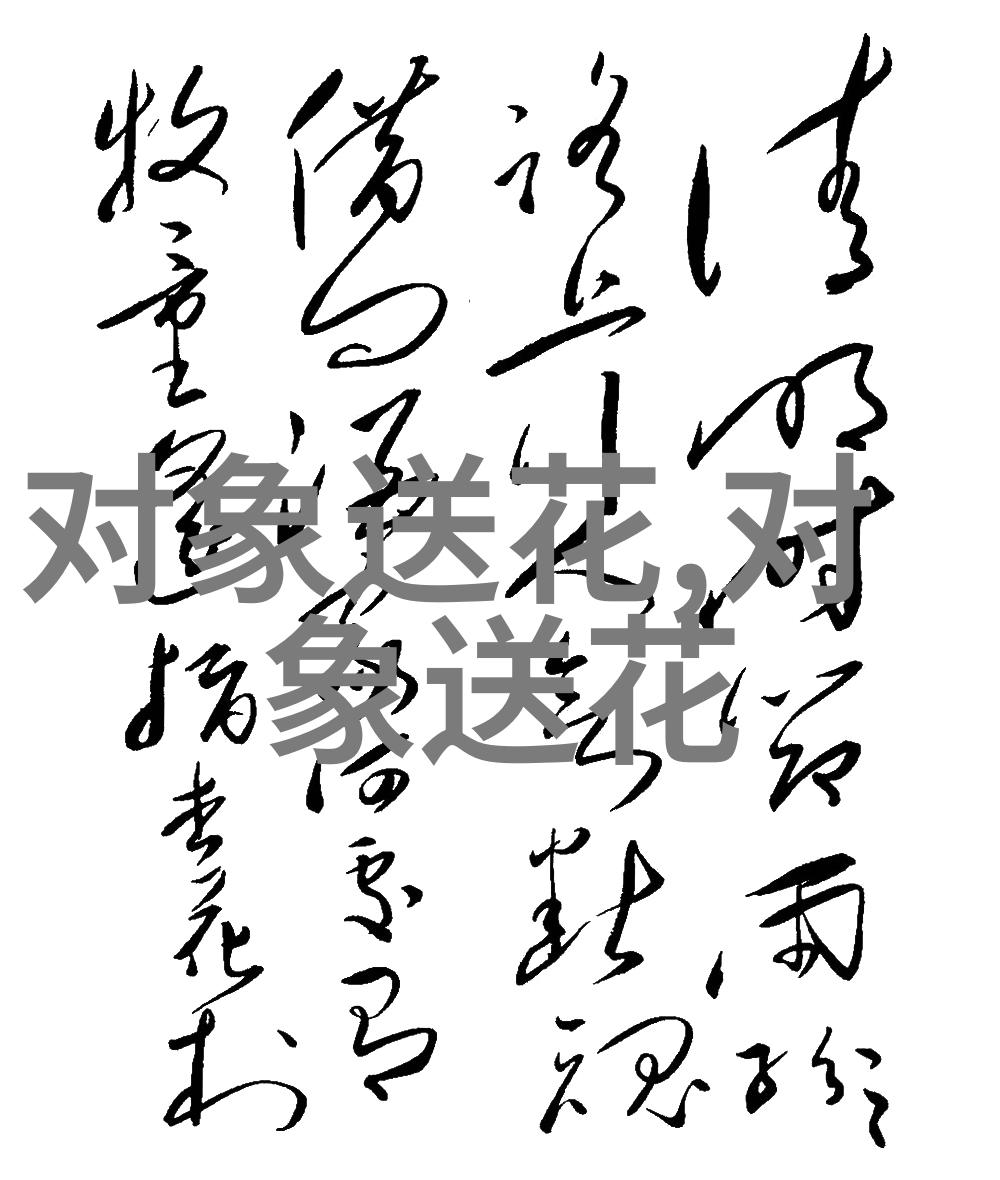 清明时节雨纷纷
路上行人欲断魂
借问酒家何处有
牧童遥指杏花村
对象送花,对
象送花